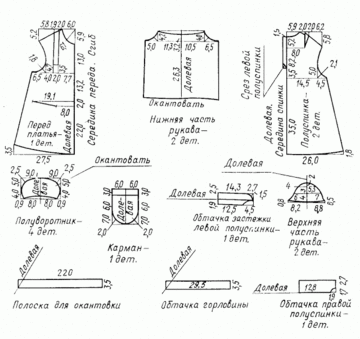 5,8 1,9 2,0 2,2
5,2
5,9
Сгиб
13,0
13,2
22,0
Середина переда.
Долевая
6,5 4,0 2,0
19,1
8,0
Перед платья-
1 дет.
3,5
27,5
5,0
4,7
11,3
10,5
6,5
26,3
Долевая
Окантовать
Нижняя часть
рукава-
2 дет.
5,8 2,0 2,0 6,2
1,5
1,8
2,1
Срез левой
полуспинки
Долевая.
Середина спинки
35,0
14,5
4,5
Полуспинка-
2 дет.
26,0
1,8
Окантовать
2,5 9,0
9,0 2,5
Долевая
0,9 8,0
8,0 0,9
Полуворотник-
4 дет.
6,0 6,0
3,0
Долевая
2,0
2,0
Карман-
1 дет.
Долевая
2,5
14,3
2,7
1,5
1,9
12,5
4,5
Обтачка застежки
левой полуспинки-
1 дет.
Долевая
2
4
6
8,2
6,8
8,5
Верхняя
часть
рукава-
2 дет.
Долевая
22,0
3,5
Полоска для окантовки
Долевая
29,3
3,5
Обтачка горловины
Долевая
12,8
1,9
1,7
2,7
Обтачка правой
полуспинки-
1 дет.